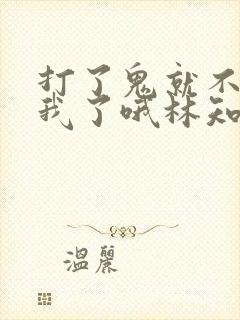 打了鬼就不
我了哦林知
温丽